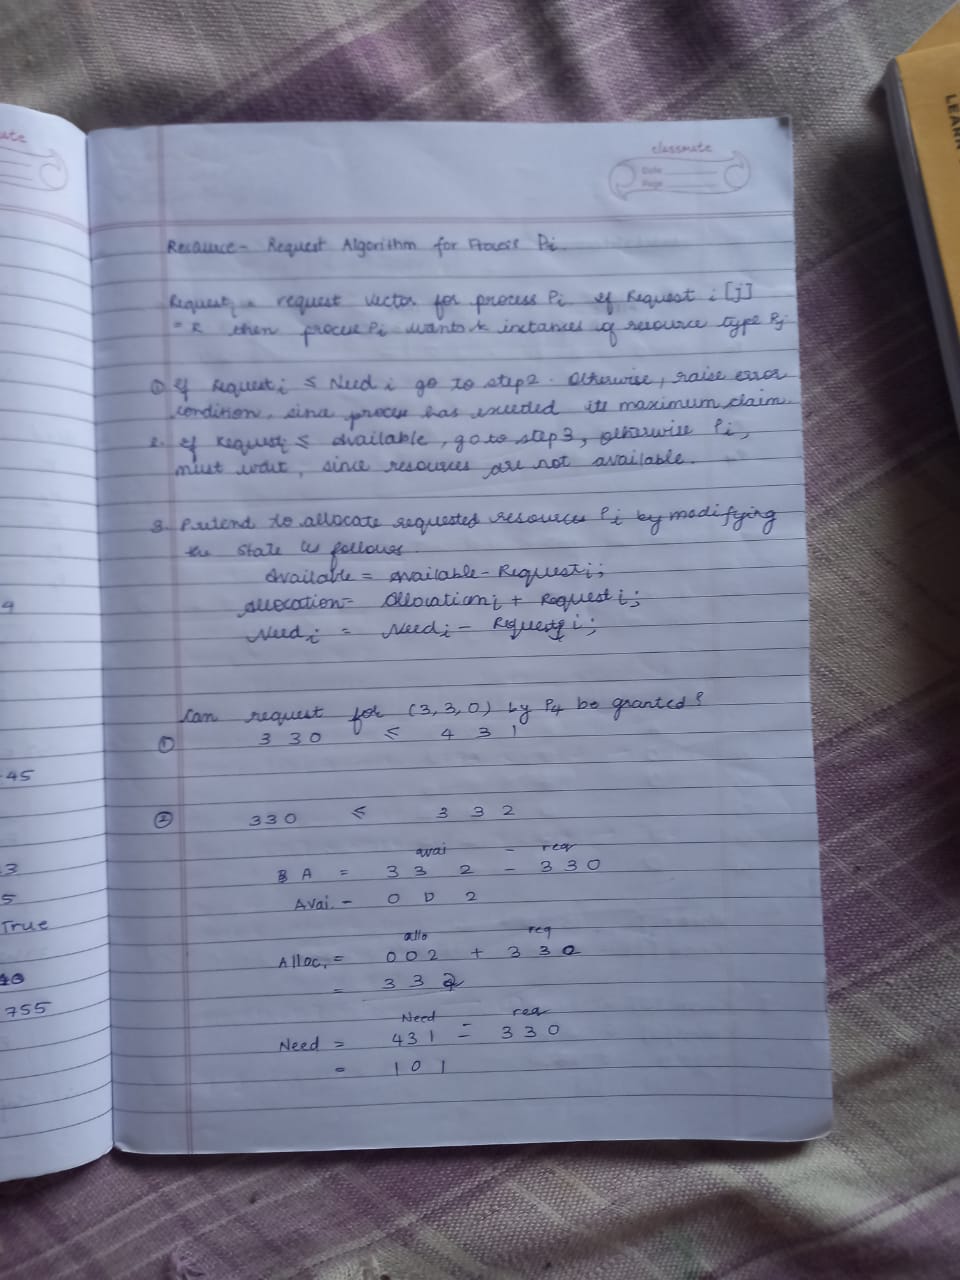 ate
classmate
Date
Page
LEARN
Resource- Request Algorithm for Process Pi.
Request i = request vector for process Pi if Request i [j]
= k then process Pi wants k instances of resource type Rj
① if Request i ≤ Need i go to step 2. Otherwise, raise error
condition, since process has exceeded its maximum claim.
2. if Request i ≤ Available, go to step 3, otherwise Pi,
must wait, since resources are not available.
3. Pretend to allocate requested resources Pi by modifying
the state as follows.
Available = available - Request i;
Allocation = Allocation i + Request i;
Need i = Need i - Request i;
Can request for (3,3,0) by P4 be granted?
① 3 3 0 ≤ 4 3 1
② 330 ≤ 3 3 2
avai - req
A = 3 3 2 - 3 3 0
Avai. - 0 0 2
allo req
Alloc, = 0 0 2 + 3 3 0
= 3 3 2
Need req
Need = 4 3 1 - 3 3 0
= 1 0 1
9
45
3
5
True
755